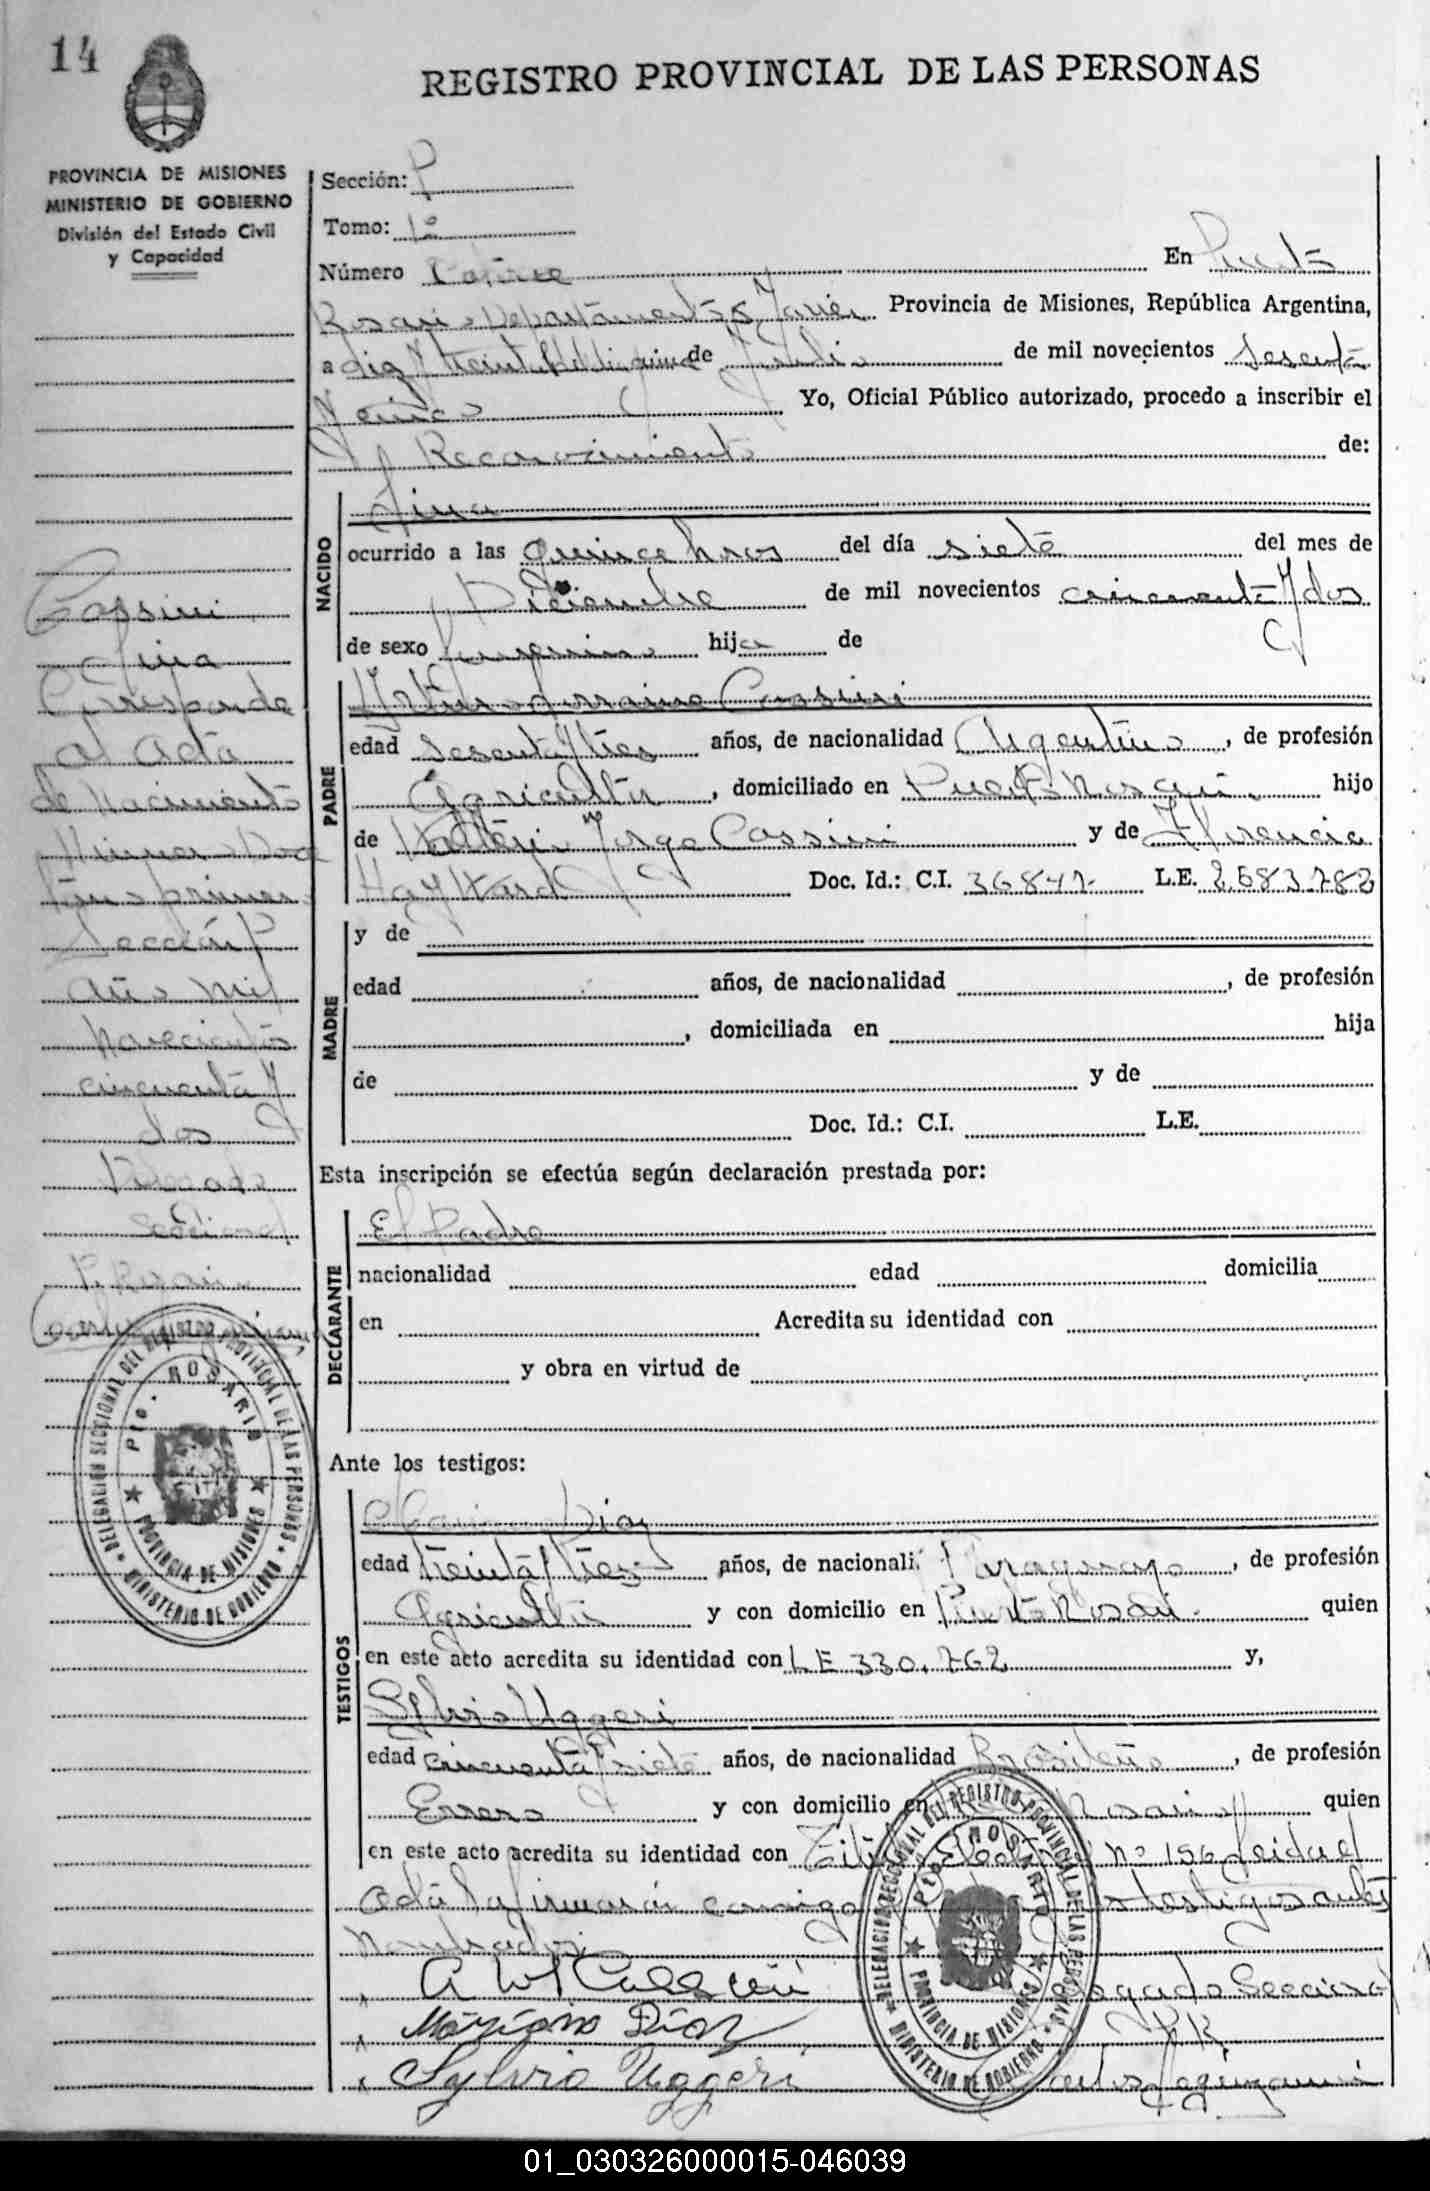 14
REGISTRO PROVINCIAL DE LAS PERSONAS
PROVINCIA DE MISIONES
MINISTERIO DE GOBIERNO
División del Estado Civil
y Capacidad
Sección: P
Tomo: 1º
Número Catorce En Puerto
Rosario Departamento S Javier Provincia de Misiones, República Argentina,
a diez y de Julio de mil novecientos sesenta
Yo, Oficial Público autorizado, procedo a inscribir el
Reconocimiento de:
NACIDO
Lina
ocurrido a las quince horas del día siete del mes de
Diciembre de mil novecientos cincuenta y dos
de sexo femenino hija de
PADRE
Arthur Lorraine Cassini
edad sesenta y tres años, de nacionalidad Argentino, de profesión
Agricultor, domiciliado en Puerto Rosario hijo
de Jorge Cassini y de Florencia
Hayward Doc. Id.: C.I. 36847- L.E. 2.683.782
MADRE
y de
edad años, de nacionalidad , de profesión
, domiciliada en hija
de y de
Doc. Id.: C.I. L.E.
Esta inscripción se efectúa según declaración prestada por:
DECLARANTE
El Padre
nacionalidad edad domicilia
en Acredita su identidad con
y obra en virtud de
Ante los testigos:
TESTIGOS
Mariano Diaz
edad treinta y tres años, de nacionali. Paraguayo, de profesión
Agricultor y con domicilio en Puerto Rosario quien
en este acto acredita su identidad con LE 330.762 y,
Sylvio Uggeri
edad cincuenta y siete años, de nacionalidad Brasileño, de profesión
y con domicilio en Rosario quien
en este acto acredita su identidad con Nº 156 leida el
acta la firmaran conmigo testigos antes
nombrados
A W L Cassini
Delegado Seccional
Mariano Diaz
P.R.
Sylvio Uggeri
Carlos Leguizamón
Cassini
Lina
Corresponde
al Acta
de Nacimiento
Número Doce
Tomo primero
Sección P
Año mil
novecientos
cincuenta y
dos
Delegado
Seccional
P. Rosario
Carlos Leguizamón
DELEGACION SECCIONAL DEL REGISTRO PROVINCIAL DE LAS PERSONAS
Pto. ROSARIO
PROVINCIA DE MISIONES
MINISTERIO DE GOBIERNO
DELEGACION SECCIONAL DEL REGISTRO PROVINCIAL DE LAS PERSONAS
Pto. ROSARIO
PROVINCIA DE MISIONES
MINISTERIO DE GOBIERNO
01_030326000015-046039